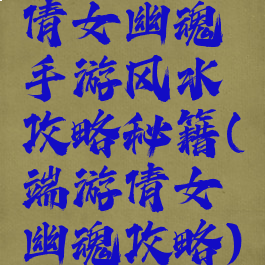 倩女幽魂
手游风水
攻略秘籍(
端游倩女
幽魂攻略)